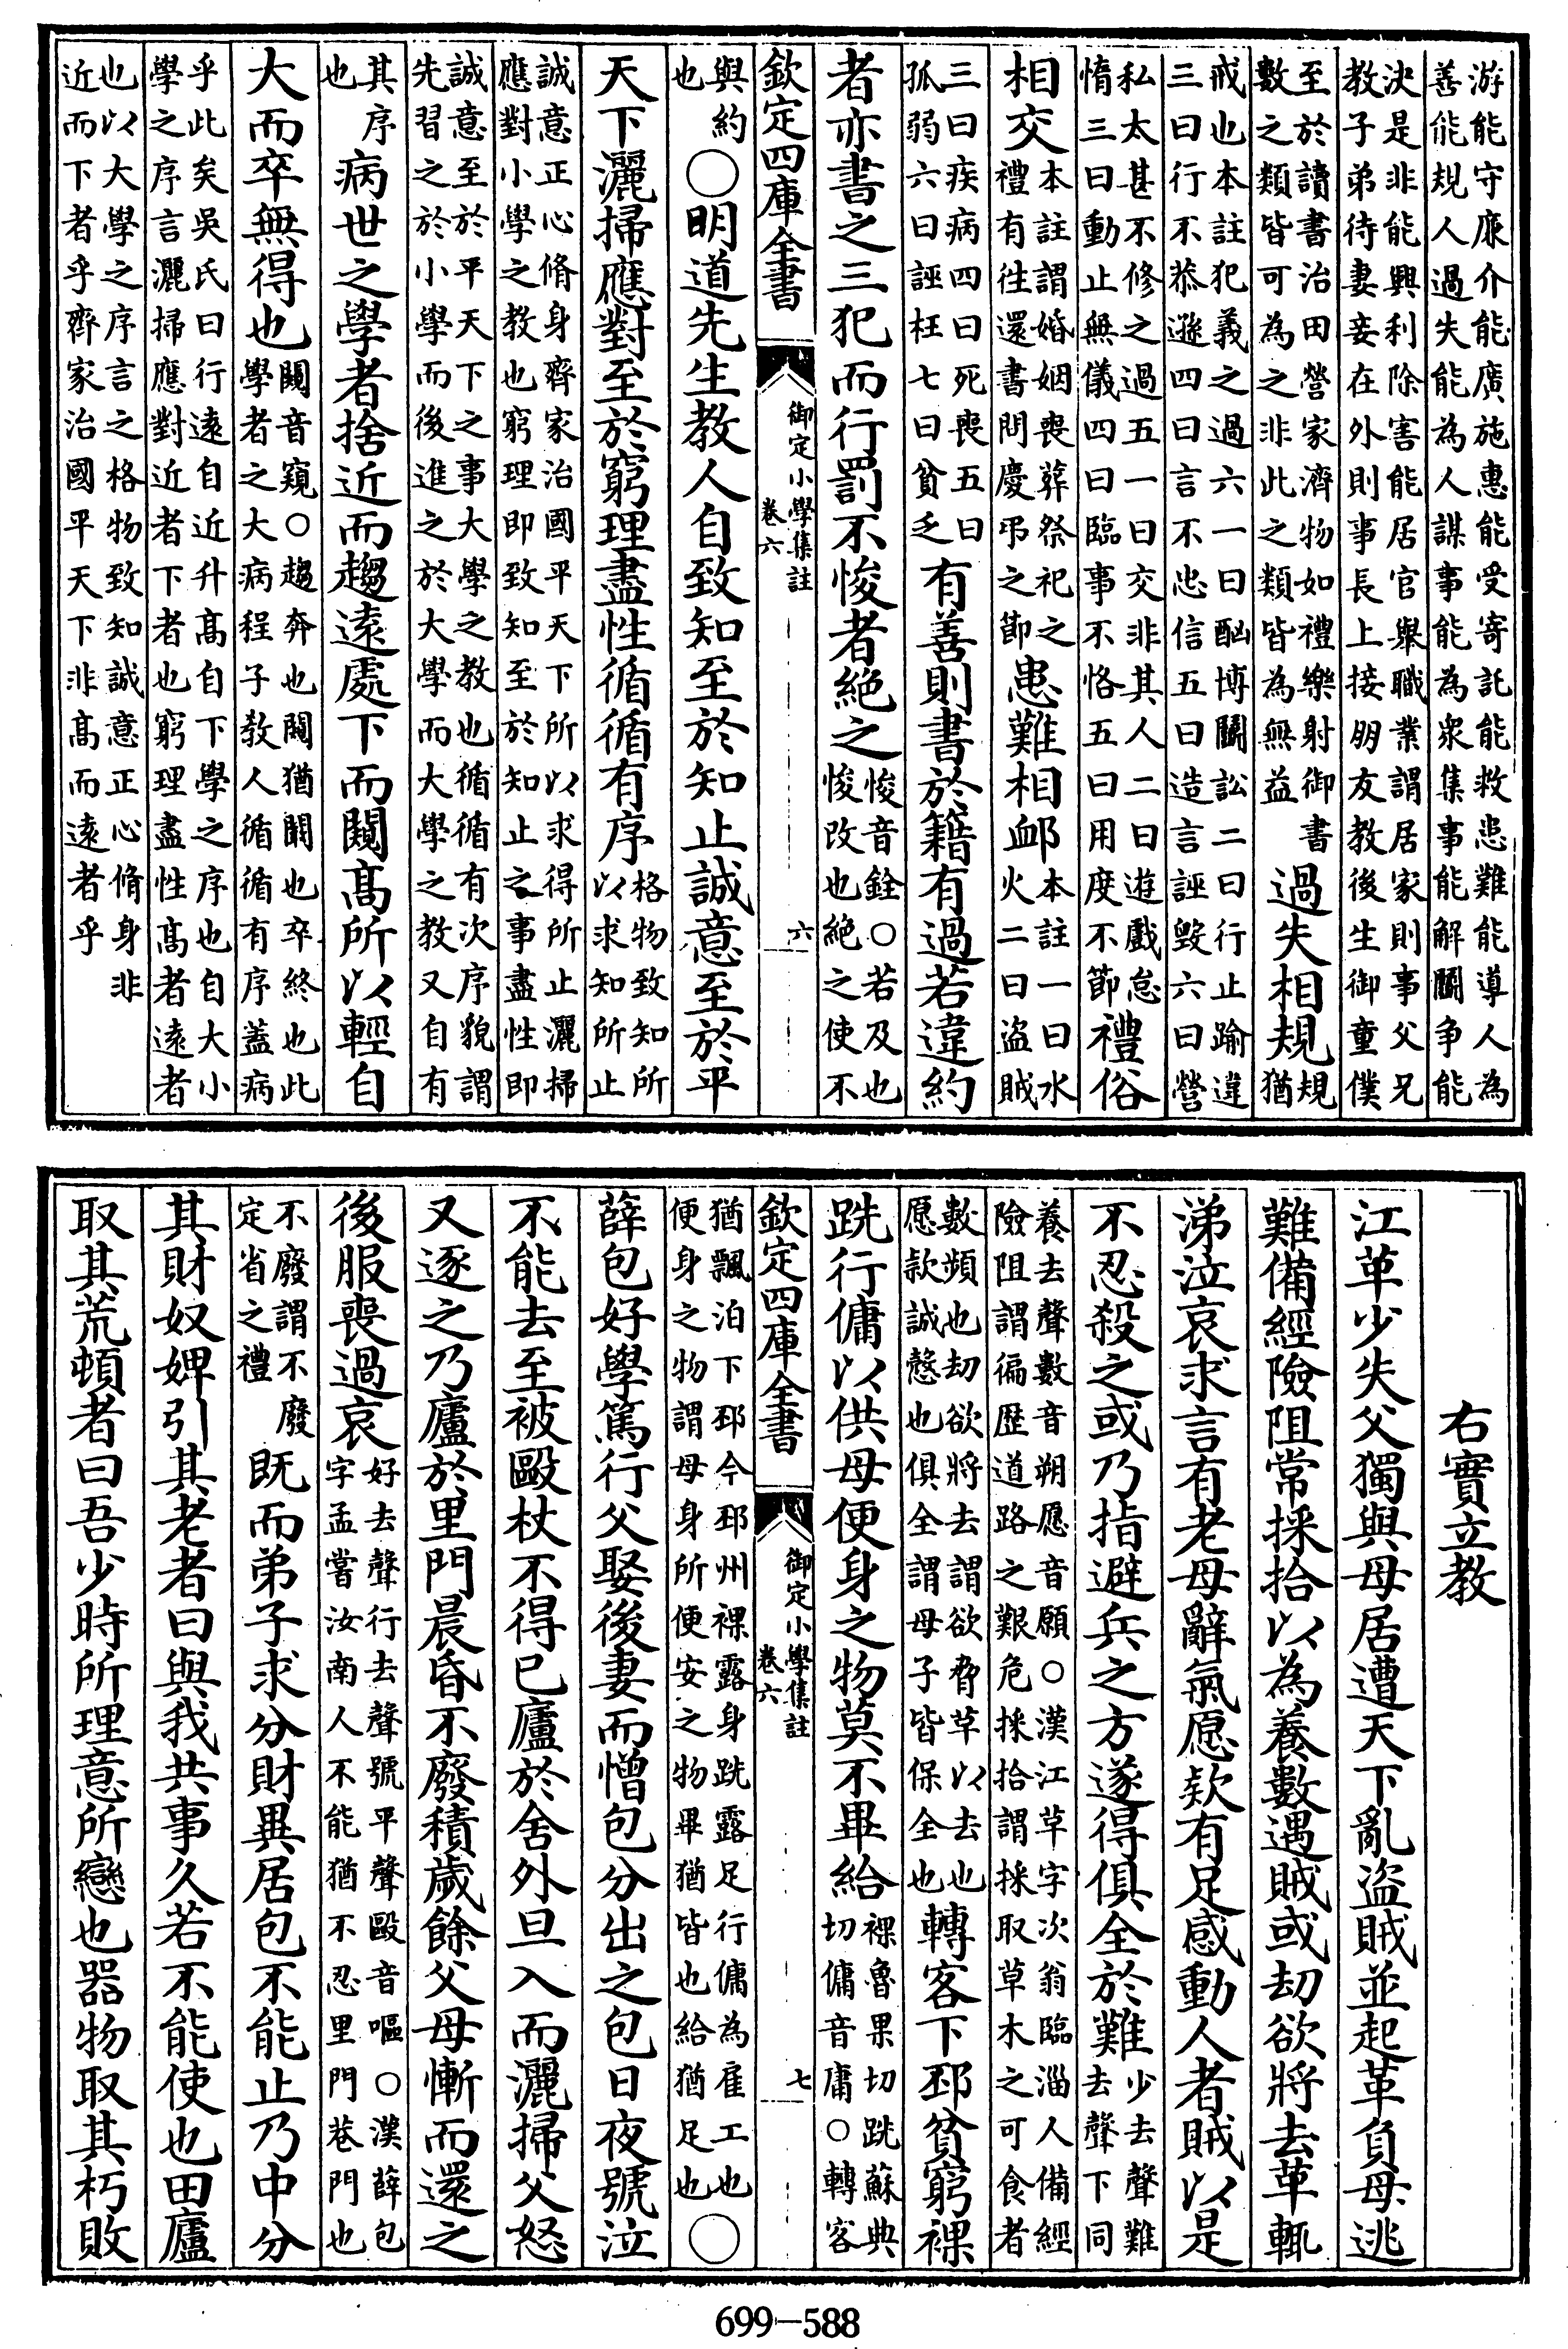 游能守廉介能廣施惠能受寄託能救患難能導人為
善能規人過失能為人謀事能為衆集事能解鬭争能
決是非能興利除害能居官舉職業謂居家則事父兄
教子弟待妻妾在外則事長上接朋友教後生御童僕
至於讀書治田營家濟物如禮樂射御書
數之類皆可為之非此之類皆為無益
過失相規
規猶
戒也本註犯義之過六一曰酗博鬭訟二曰行止踰違
三曰行不恭遜四曰言不忠信五曰造言誣毀六曰營
私太甚不修之過五一曰交非其人二曰遊戲怠
惰三曰動止無儀四曰臨事不恪五曰用度不節
禮俗
相交
本註謂婚姻喪葬祭祀之
禮有往還書問慶弔之節
患難相卹
本註一曰水
火二曰盜賊
三曰疾病四曰死喪五曰
孤弱六曰誣枉七曰貧乏
有善則書於籍有過若違約
者亦書之三犯而行罰不悛者絶之
悛音銓○若及也
悛改也絶之使不
欽定四庫全書
御定小學集註
卷六
六
與約
也
○明道先生教人自致知至於知止誠意至於平
天下灑掃應對至於窮理盡性循循有序
格物致知所
以求知所止
誠意正心脩身齊家治國平天下所以求得所止灑掃
應對小學之教也窮理即致知至於知止之事盡性即
誠意至於平天下之事大學之教也循循有次序貌謂
先習之於小學而後進之於大學而大學之教又自有
其序
也
病世之學者捨近而趨遠處下而闚髙所以輕自
大而卒無得也
闚音窺○趨奔也闚猶闞也卒終也此
學者之大病程子教人循循有序蓋病
乎此矣吳氏曰行遠自近升髙自下學之序也自大小
學之序言灑掃應對近者下者也窮理盡性髙者遠者
也以大學之序言之格物致知誠意正心脩身非
近而下者乎齊家治國平天下非髙而遠者乎
右實立教
江革少失父獨與母居遭天下亂盜賊並起革負母逃
難備經險阻常採拾以為養數遇賊或刼欲將去革輒
涕泣哀求言有老母辭氣愿欵有足感動人者賊以是
不忍殺之或乃指避兵之方遂得俱全於難
少去聲難
去聲下同
養去聲數音朔愿音願○漢江革字次翁臨淄人備經
險阻謂徧歴道路之艱危採拾謂採取草木之可食者
數頻也刼欲將去謂欲脅革以去也
愿款誠慤也俱全謂母子皆保全也
轉客下邳貧窮裸
跣行傭以供母便身之物莫不畢給
裸魯果切跣蘇典
切傭音庸○轉客
欽定四庫全書
御定小學集註
卷六
七
猶飄泊下邳今邳州裸露身跣露足行傭為雇工也
便身之物謂母身所便安之物畢猶皆也給猶足也
○
薛包好學篤行父娶後妻而憎包分出之包日夜號泣
不能去至被毆杖不得已廬於舍外旦入而灑掃父怒
又逐之乃廬於里門晨昏不廢積歲餘父母慚而還之
後服喪過哀
好去聲行去聲號平聲毆音嘔○漢薛包
字孟嘗汝南人不能猶不忍里門巷門也
不廢謂不廢
定省之禮
既而弟子求分財異居包不能止乃中分
其財奴婢引其老者曰與我共事久若不能使也田廬
取其荒頓者曰吾少時所理意所戀也器物取其朽敗
699-588